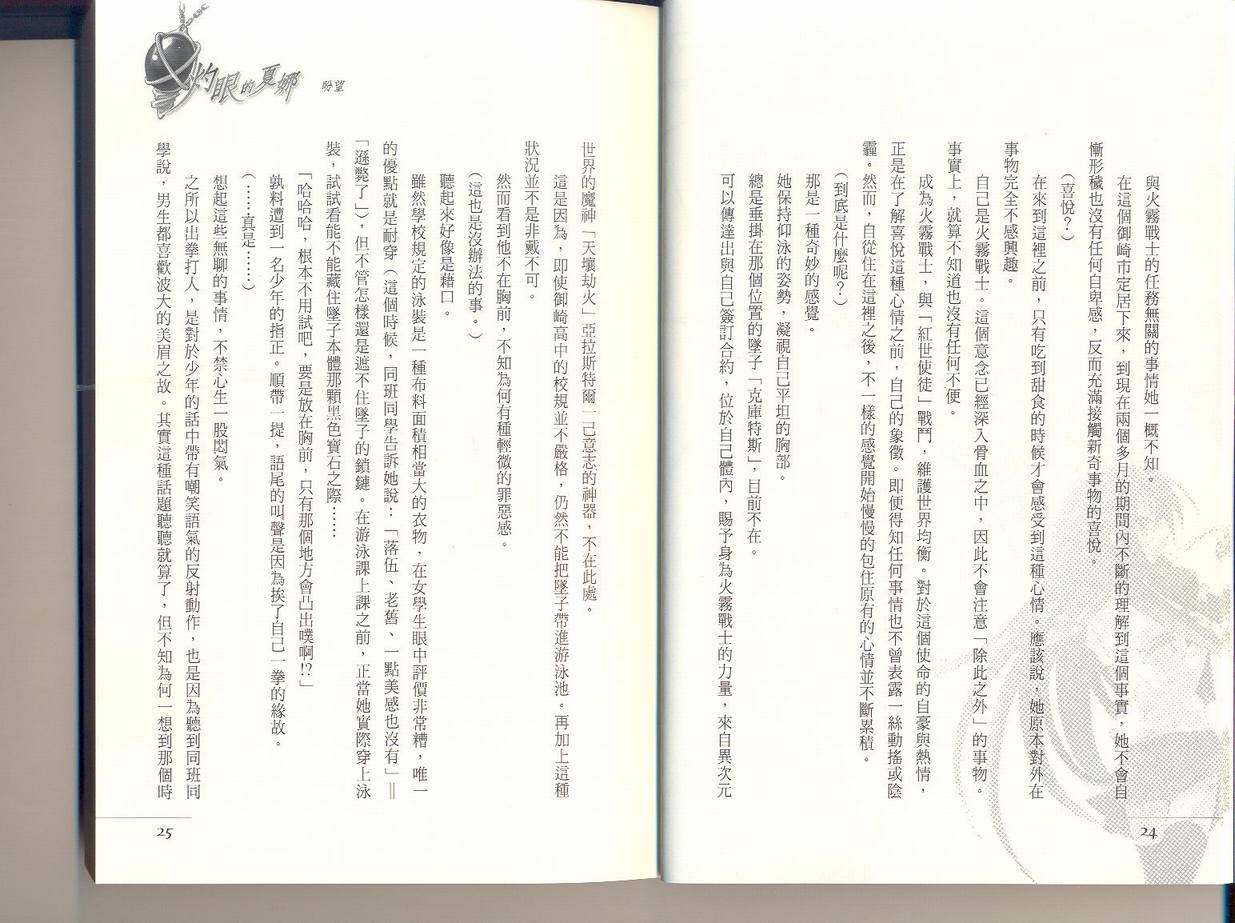 與火霧戰士的任務無關的事情她一概不知。
在這個御崎市定居下來，到現在兩個多月的期間內不斷的理解到這個事實，她不會自
慚形穢也沒有任何自卑感，反而充滿接觸新奇事物的喜悅。
（喜悅？）
在來到這裡之前，只有吃到甜食的時候才會感受到這種心情。應該說，她原本對外在
事物完全不感興趣。
自己是火霧戰士。這個意念已經深入骨血之中，因此不會注意「除此之外」的事物。
事實上，就算不知道也沒有任何不便。
成為火霧戰士，與「紅世使徒」戰鬥，維護世界均衡。對於這個使命的自豪與熱情，
正是在了解喜悅這種心情之前，自己的象徵。即便得知任何事情也不曾表露一絲動搖或陰
霾。然而，自從住在這裡之後，不一樣的感覺開始慢慢的包住原有的心情並不斷累積。
（到底是什麼呢？）
那是一種奇妙的感覺。
她保持仰泳的姿勢，凝視自己平坦的胸部。
總是垂掛在那個位置的墜子「克庫特斯」，目前不在。
可以傳達出與自己簽訂合約，位於自己體內，賜予身為火霧戰士的力量，來自異次元
24
灼眼的夏娜 盼望
世界的魔神「天壤劫火」亞拉斯特爾一己意志的神器，不在此處。
這是因為，即使御崎高中的校規並不嚴格，仍然不能把墜子帶進游泳池。再加上這種
狀況並不是非戴不可。
然而看到他不在胸前，不知為何有種輕微的罪惡感。
（這也是沒辦法的事。）
聽起來好像是藉口。
雖然學校規定的泳裝是一種布料面積相當大的衣物，在女學生眼中評價非常糟，唯一
的優點就是耐穿（這個時候，同班同學告訴她說：「落伍、老舊、一點美感也沒有」＝
「遜斃了」），但不管怎樣還是遮不住墜子的鎖鏈。在游泳課上課之前，正當她實際穿上泳
裝，試試看能不能藏住墜子本體那顆黑色寶石之際……
「哈哈哈，根本不用試吧，要是放在胸前，只有那個地方會凸出噗啊!?」
孰料遭到一名少年的指正。順帶一提，語尾的叫聲是因為挨了自己一拳的緣故。
（……真是……）
想起這些無聊的事情，不禁心生一股悶氣。
之所以出拳打人，是對於少年的話中帶有嘲笑語氣的反射動作，也是因為聽到同班同
學說，男生都喜歡波大的美眉之故。其實這種話題聽聽就算了，但不知為何一想到那個時
25